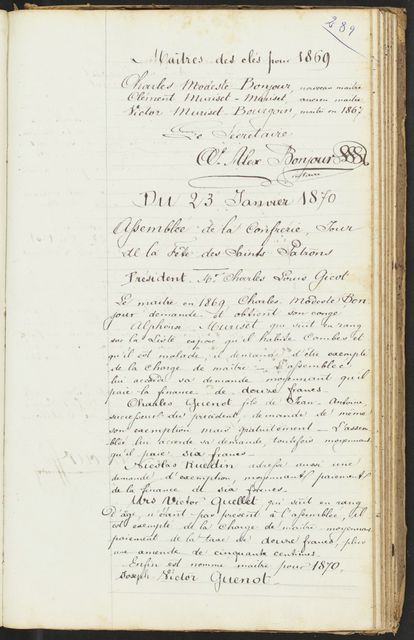 289
Maîtres des clés pour 1869
Charles Modeste Bonjour, nouveau maître
Clément Muriset-Muriset, ancien maître
Victor Muriset-Bourgoin, maître en 1867
Le Secrétaire
Alex Bonjour
notaire
Du 23 Janvier 1870
Assemblée de la Confrérie, Jour
de la Fête des Saints Patrons
Président Mr Charles Louis Gicot
Le maître en 1869 Charles Modeste Bon
jour demande et obtient son congé
Alphonse Muriset qui suit en rang
sur la Liste expose qu'il habite Combes et
qu'il est malade, il demande d'être exempté
de la charge de maître – L'assemblée
lui accorde sa demande moyennant qu'il
paie la finance de douze francs.
Charles Guenot fils de Jean-Antoine
successeur du précédent demande de même
son exemption mais gratuitement – L'assem
blée lui accorde sa demande, toutefois moyennant
qu'il paie six francs –
Nicolas Ruedin adresse aussi une
demande d'exemption, moyennant paiement
de la finance de six francs.
Urs Victor Quellet qui suit en rang
d'âge, n'étant pas présent à l'assemblée, il
est exempté de la Charge de maître moyennant
paiement de la taxe de douze francs, plus
une amende de cinquante centimes.
Enfin est nommé maître pour 1870,
Joseph Victor Guenot –